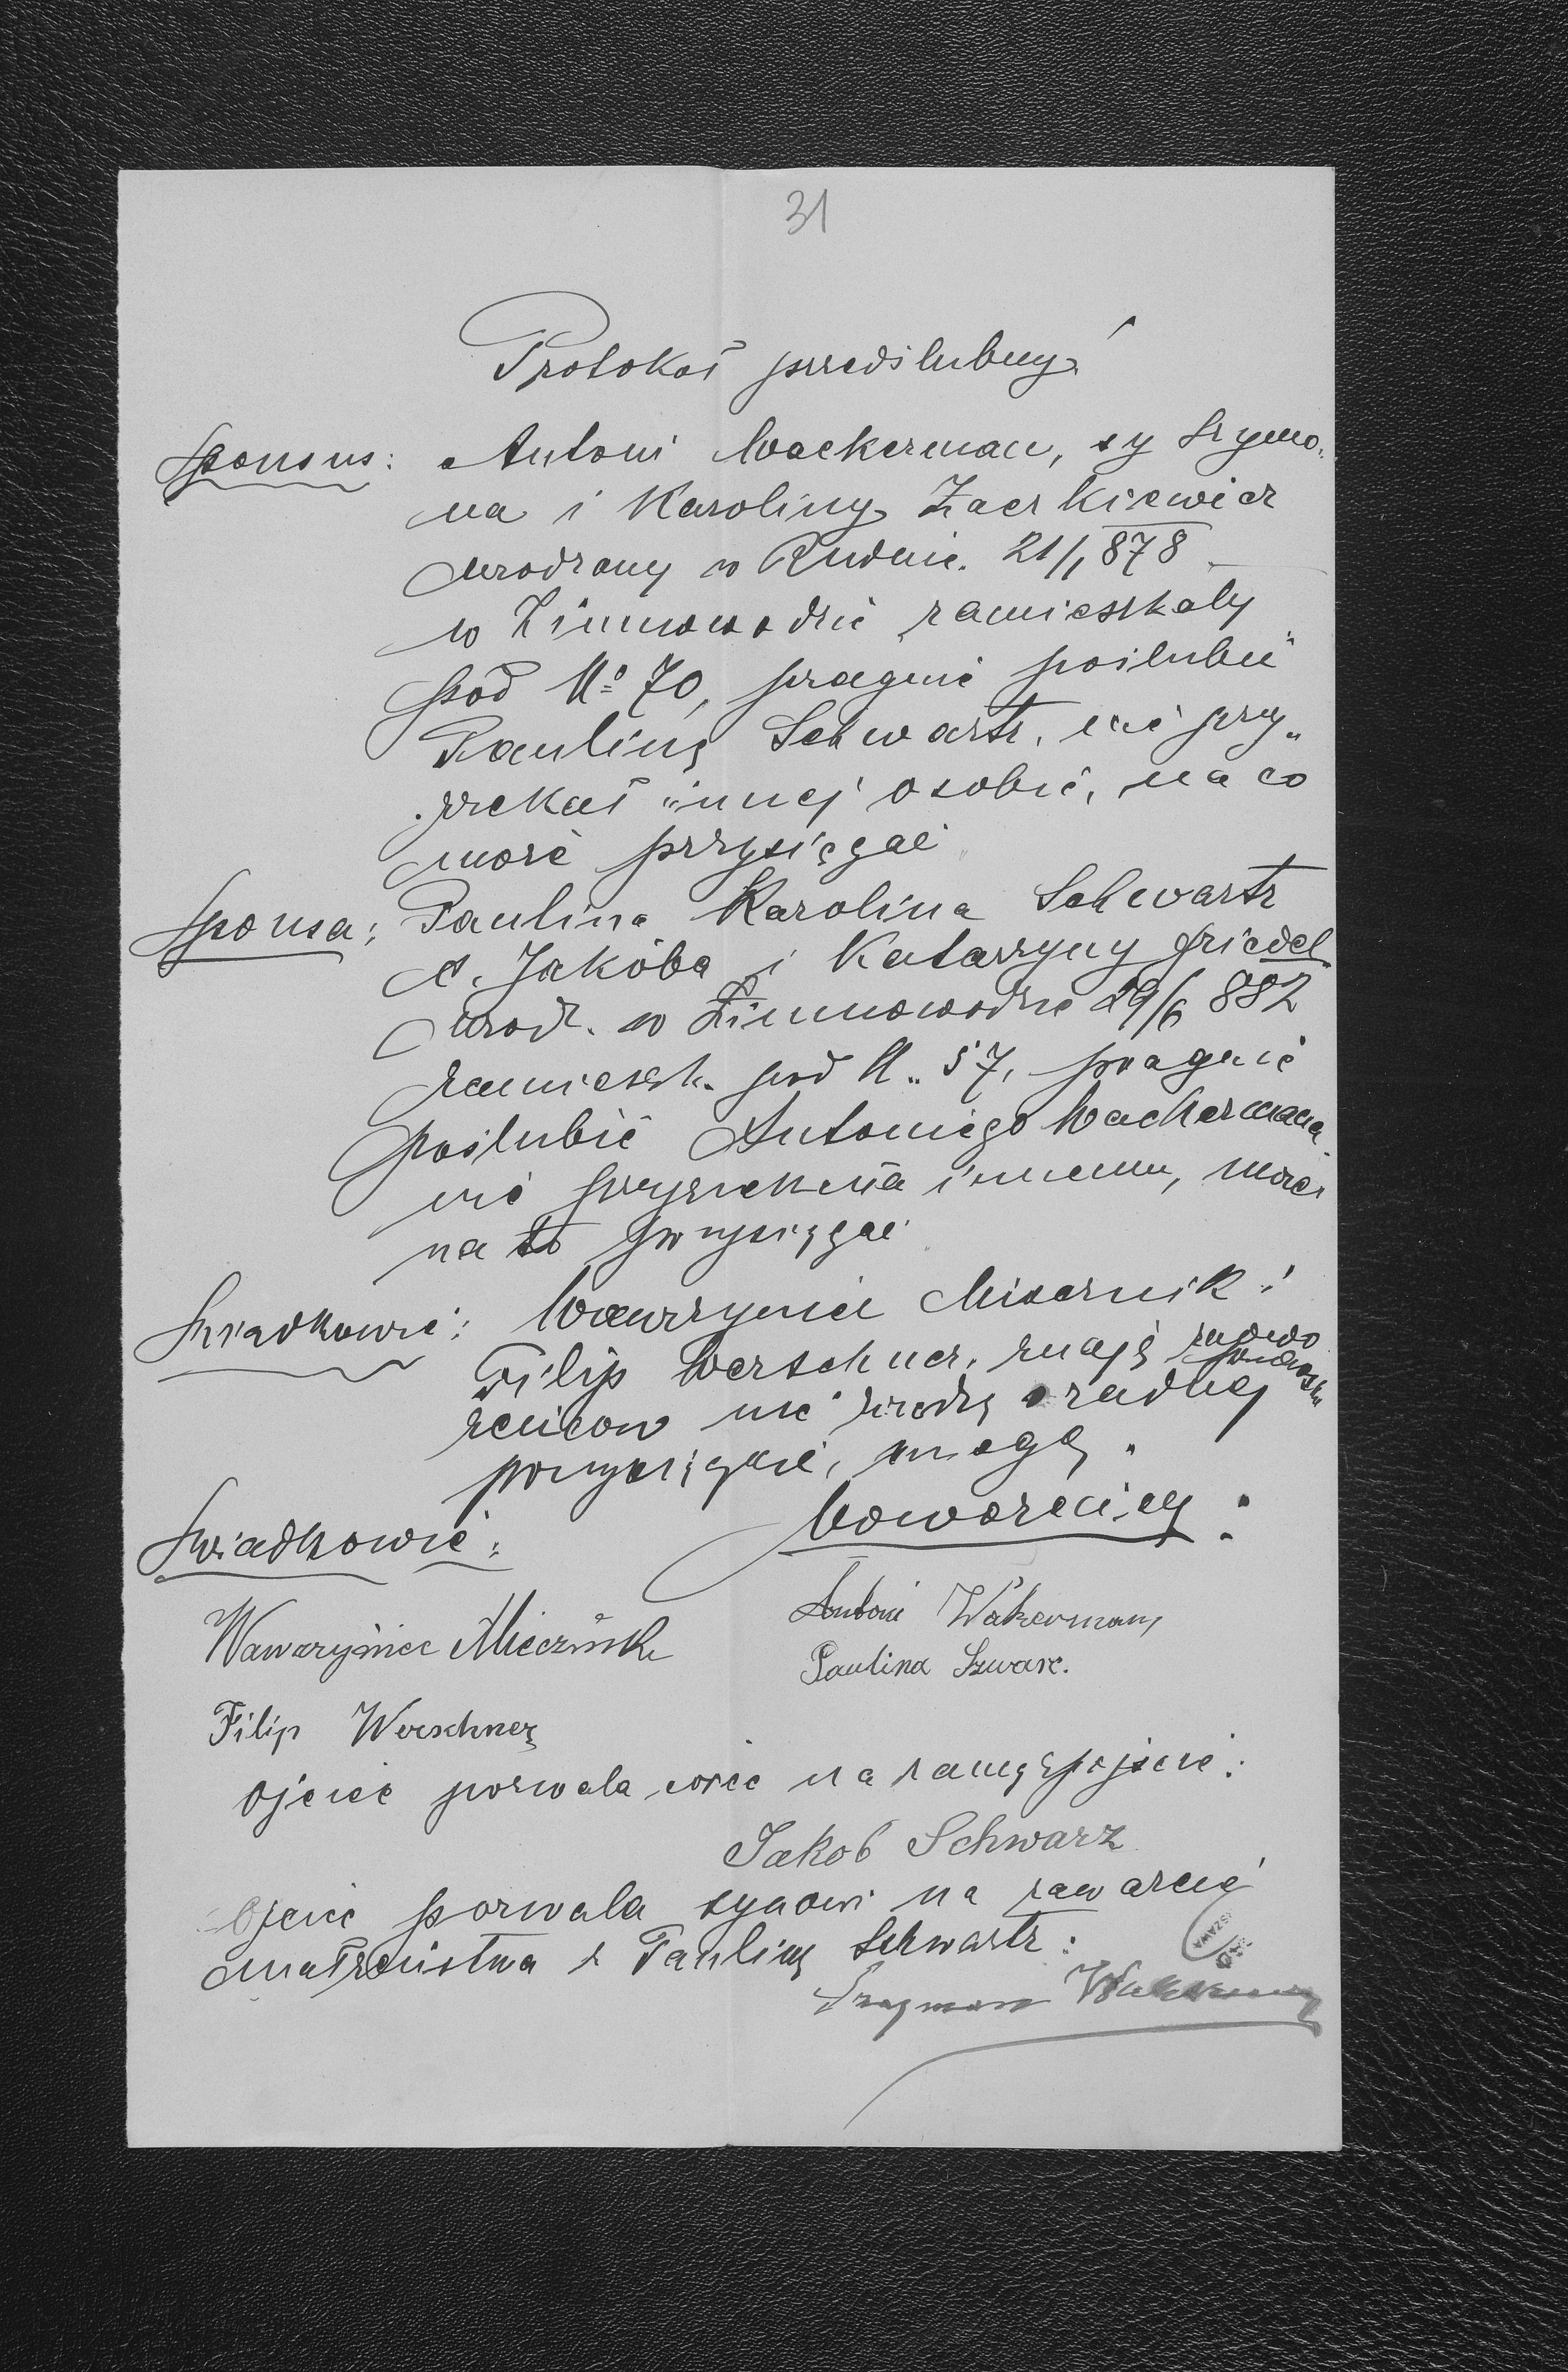 31
Protokół przedślubny
Sponsus: Antoni Wackerman, sy Szymo„
na i Karoliny Zaczkiewicz
urodzony w Rudnie. 21/1 878
w Zimnowodzie zamieszkały
pod No 70, pragnie poślubić
Paulinę Schwartz, nie przy„
rzekał innej osobie, na co
może przysięgać
Sponsa: Paulina Karolina Schwartz
c. Jakóba i Katarzyny Friedel
urodz. w Zimnowodzie 29/6 882
zamieszk. pod N. 57, pragnie
poślubić Antoniego Wackermana
nie przyrzekała innemu, może
na to przysięgać
Świadkowie: Wawrzyniec Misernik i
Filip Werschner, znają
nie żadnej
przysięgać, mogą.
Świadkowie:
Nowożeńcy:
Wawarzyniec
Antoni Wakerman
Paulina Szwarc.
Filip Werschner
Ojciec pozwala córce na zamążpójście:
Jakob Schwarz
Ojciec pozwala synowi na zawarcie
małżeństwa z Pauliną Schwartz: